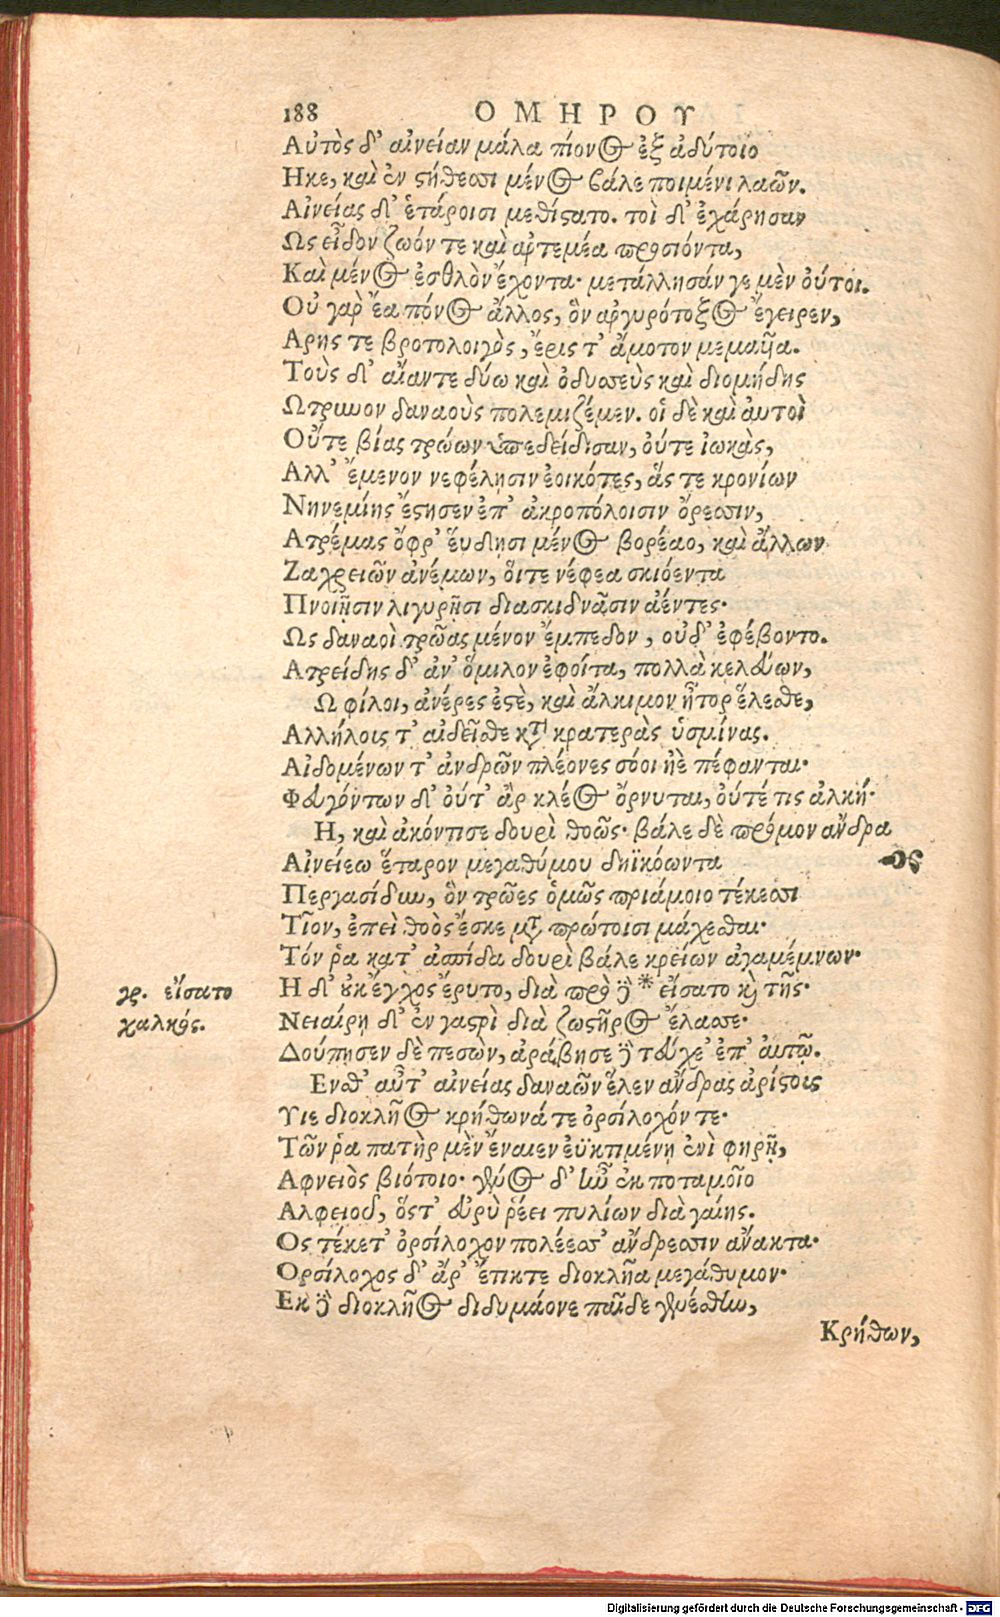 188 ΟΜΗΡΟΥ
Αὐτὸς δ' αἰνείαν μάλα πίονος ἐξ ἀδύτοιο
Ηκε, καὶ ἐν στήθεσσι μένος βάλε ποιμένι λαῶν.
Αἰνείας δ' ἑτάροισι μεθίστατο. τοὶ δ' ἐχάρησαν
Ως εἶδον ζωόν τε καὶ ἀρτεμέα προσιόντα,
Καὶ μένος ἐσθλὸν ἔχοντα· μετάλλησάν γε μὲν οὔτοι.
Οὐ γὰρ ἔα πόνος ἄλλος, ὃν ἀργυρότοξος ἔγειρεν,
Αρης τε βροτολοιγὸς, ἔρις τ' ἄμοτον μεμαῦα.
Τοὺς δ' αἴαντε δύω καὶ ὀδυσσεὺς καὶ διομήδης
Ωτρυνον δαναοὺς πολεμιζέμεν. οἱ δὲ καὶ ἀυτοὶ
Οὔτε βίας τρώων ὑπεδείδισαν, ὀύτε ἰωκὰς,
Αλλ' ἔμενον νεφέλησιν ἐοικότες, ἅς τε κρονίων
Νηνεμίης ἔστησεν ἐπ' ἀκροπόλοισιν ὄρεσσιν,
Ατρέμας ὄφρ' ἕυδησι μένος βορέαο, καὶ ἄλλων
Ζαχρειῶν ἀνέμων, ὅιτε νέφεα σκιόεντα
Πνοιῇσιν λιγυρῇσι διασκιδνᾶσιν ἀέντες·
Ως δαναοὶ τρῶας μένον ἔμπεδον, οὐδ' ἐφέβοντο.
Ατρείδης δ' ἀν' ὅμιλον ἐφοίτα, πολλὰ κελεύων,
Ω φίλοι, ἀνέρες ἐστὲ, καὶ ἄλκιμον ἦτορ ἕλεσθε,
Αλλήλοις τ' αἰδεῖσθε κατὰ κρατερὰς ὑσμίνας.
Αἰδομένων τ' ἀνδρῶν πλέονες σόοι ἠὲ πέφανται·
Φευγόντων δ' οὔτ' ἂρ κλέος ὄρνυται, οὐτέ τις ἀλκή·
Η, καὶ ἀκόντισε δουρὶ θοῶς· βάλε δὲ πρόμον ἄνδρα
Αἰνείεω ἕταρον μεγαθύμου δηϊκόωντα
Περγασίδην, ὃν τρῶες ὁμῶς πριάμοιο τέκεσσι
Τῖον, ἐπεὶ θοὸς ἔσκε μετὰ πρώτοισι μάχεσθαι·
Τόν ῥα κατ' ἀσπίδα δουρὶ βάλε κρείων ἀγαμέμνων·
Η δ' οὐκ ἔγχος ἔρυτο, διὰ πρὸ δὲ *εἴσατο καὶ τῆς·
γρ. εἴσατο
χαλκός.
Νειαίρῃ δ' ἐν γαστρὶ διὰ ζωστῆρος ἔλασσε·
Δούπησεν δὲ πεσὼν, ἀράβησε δὲ τεύχε' ἐπ' ἀυτῷ.
Ενθ' αὖτ' αἰνείας δαναῶν ἕλεν ἄνδρας ἀρίστους
Υιε διοκλῆος κρήθωνά τε ὀρσίλοχόν τε·
Τῶν ῥα πατὴρ μὲν ἔναιεν ἐϋκτιμένῃ ἐνὶ φηρῇ,
Αφνειὸς βιότοιο· γένος δ' ἦν ἐκ ποταμοῖο
Αλφειοῦ, ὅστ' ἐυρὺ ῥέει πυλίων διὰ γαίης.
Ος τέκετ' ὀρσίλοχον πολέεσσ' ἄνδρεσσιν ἄνακτα·
Ορσίλοχος δ' ἄρ' ἔτικτε διοκλῆα μεγάθυμον·
Εκ δὲ διοκλῆος διδυμάονε παῖδε γενέσθην,
Κρήθων,
Digitalisierung gefördert durch die Deutsche Forschungsgemeinschaft - DFG